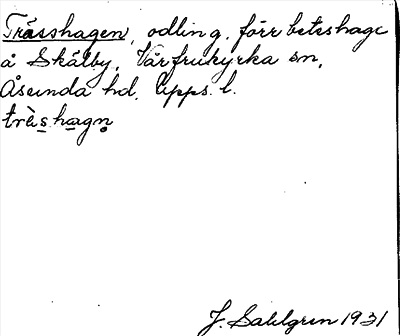 Trässhagen, odling, förr beteshage
å Skälby, Vårfrukyrka sn,
Åsunda hd, Upps. l.
trä̀shagn̥
J. Sahlgren 1931